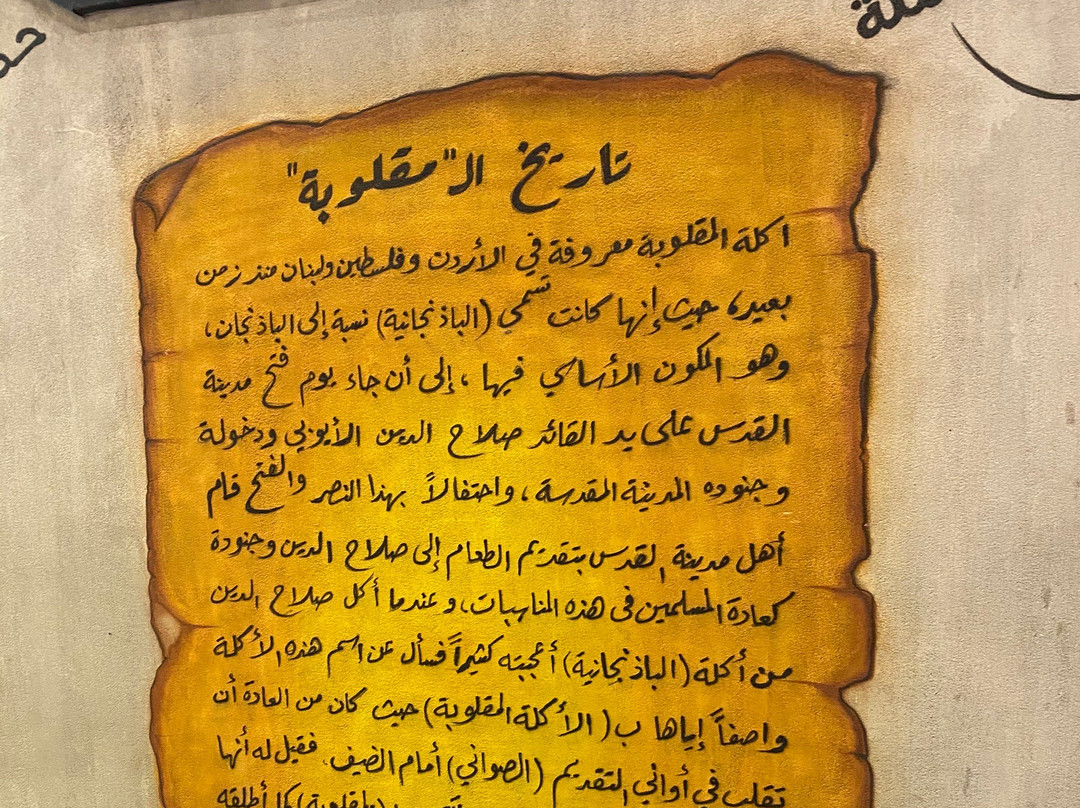 تاريخ الـ"مقلوبة"
اكلة المقلوبة معروفة في الأردن وفلسطين ولبنان منذ زمن
بعيد، حيث إنها كانت تسمي (الباذنجانية) نسبة إلى الباذنجان،
وهو المكون الأساسي فيها، إلى أن جاء يوم فتح مدينة
القدس على يد القائد صلاح الدين الأيوبي ودخولة
وجنوده المدينة المقدسة، واحتفالاً بهذا النصر والفتح قام
أهل مدينة القدس بتقديم الطعام إلى صلاح الدين وجنودة
كعادة المسلمين في هذه المناسبات، وعندما أكل صلاح الدين
من أكلة (الباذنجانية) أعجبته كثيراً فسأل عن اسم هذه الأكلة
واصفاً إياها ب (الأكلة المقلوبة) حيث كان من العادة أن
تقلب في أواني التقديم (الصواني) أمام الضيف. فقيل له أنها
كما أطلقه